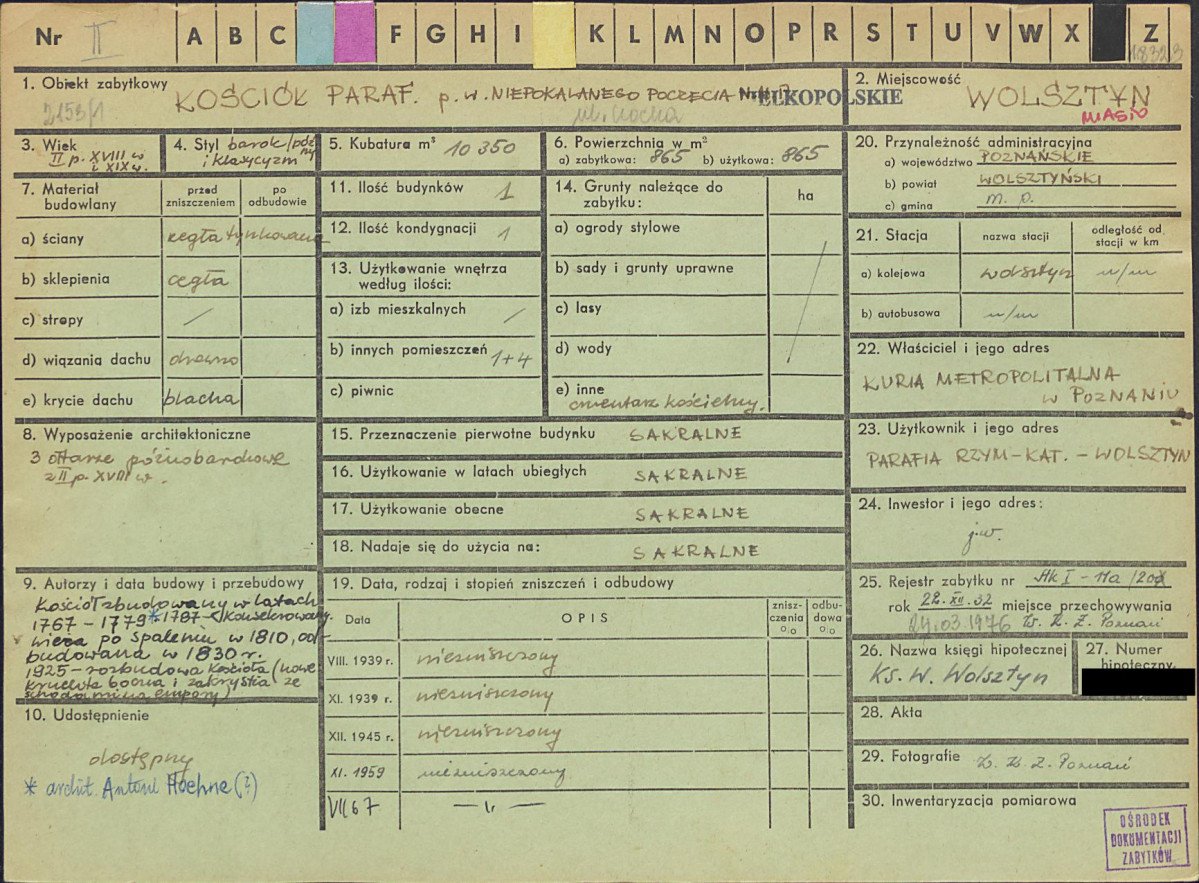 Nr II A B C F G H I K L M N O P R S T U V W X Z
18323
1. Obiekt zabytkowy
KOŚCIÓŁ PARAF. p.w. NIEPOKALANEGO POCZĘCIA N.M.P.
2153/1
WIELKOPOLSKIE
2. Miejscowość
WOLSZTYN
MIASTO
3. Wiek
II p. XVIII w
i XIX w.
4. Styl barok/póź
ny
i klasycyzm
5. Kubatura m³ 10 350
6. Powierzchnia w m²
a) zabytkowa: 865 b) użytkowa: 865
20. Przynależność administracyjna
a) województwo POZNAŃSKIE
b) powiat WOLSZTYŃSKI
c) gmina m. p.
7. Materiał
budowlany
przed
zniszczeniem
po
odbudowie
a) ściany cegła tynkowana
b) sklepienia cegła
c) stropy /
d) wiązania dachu drewno
e) krycie dachu blacha
11. Ilość budynków 1
12. Ilość kondygnacji 1
13. Użytkowanie wnętrza
według ilości:
a) izb mieszkalnych /
b) innych pomieszczeń 1+4
c) piwnic
14. Grunty należące do
zabytku:
ha
a) ogrody stylowe
b) sady i grunty uprawne
c) lasy
d) wody
e) inne
cmentarz kościelny.
21. Stacja
nazwa stacji
odległość od
stacji w km
a) kolejowa Wolsztyn w/m
b) autobusowa w/m
22. Właściciel i jego adres
KURIA METROPOLITALNA
w POZNANIU
8. Wyposażenie architektoniczne
3 ołtarze późnobarokowe
z II p. XVIII w.
15. Przeznaczenie pierwotne budynku SAKRALNE
16. Użytkowanie w latach ubiegłych SAKRALNE
17. Użytkowanie obecne SAKRALNE
18. Nadaje się do użycia na: SAKRALNE
23. Użytkownik i jego adres
PARAFIA RZYM-KAT. - WOLSZTYN
24. Inwestor i jego adres:
j.w.
9. Autorzy i data budowy i przebudowy
Kościół zbudowany w latach
1767 - 1779 * 1787 konsekrowany.
wieża po spaleniu w 1810, od-
budowana w 1830 r.
1925 - rozbudowa kościoła (nowe
kruchta boczna i zakrystia ze
schodami na empory)
10. Udostępnienie
dostępny
* archit. Antoni Hoehne (?)
19. Data, rodzaj i stopień zniszczeń i odbudowy
Data
OPIS
znisz-
czenia
%
odbu-
dowa
%
VIII. 1939 r. niezniszczony
XI. 1939 r. niezniszczony
XII. 1945 r. niezniszczony
XI. 1959 niezniszczony
VII 67 — „ —
25. Rejestr zabytku nr Ak I - 11a/200
rok 22.XII.32 miejsce przechowywania
24.03.1976 W.K.Z. Poznań
26. Nazwa księgi hipotecznej
Ks. W. Wolsztyn
27. Numer
hipoteczny
28. Akta
29. Fotografie W.K.Z. Poznań
30. Inwentaryzacja pomiarowa
OŚRODEK
DOKUMENTACJI
ZABYTKÓW